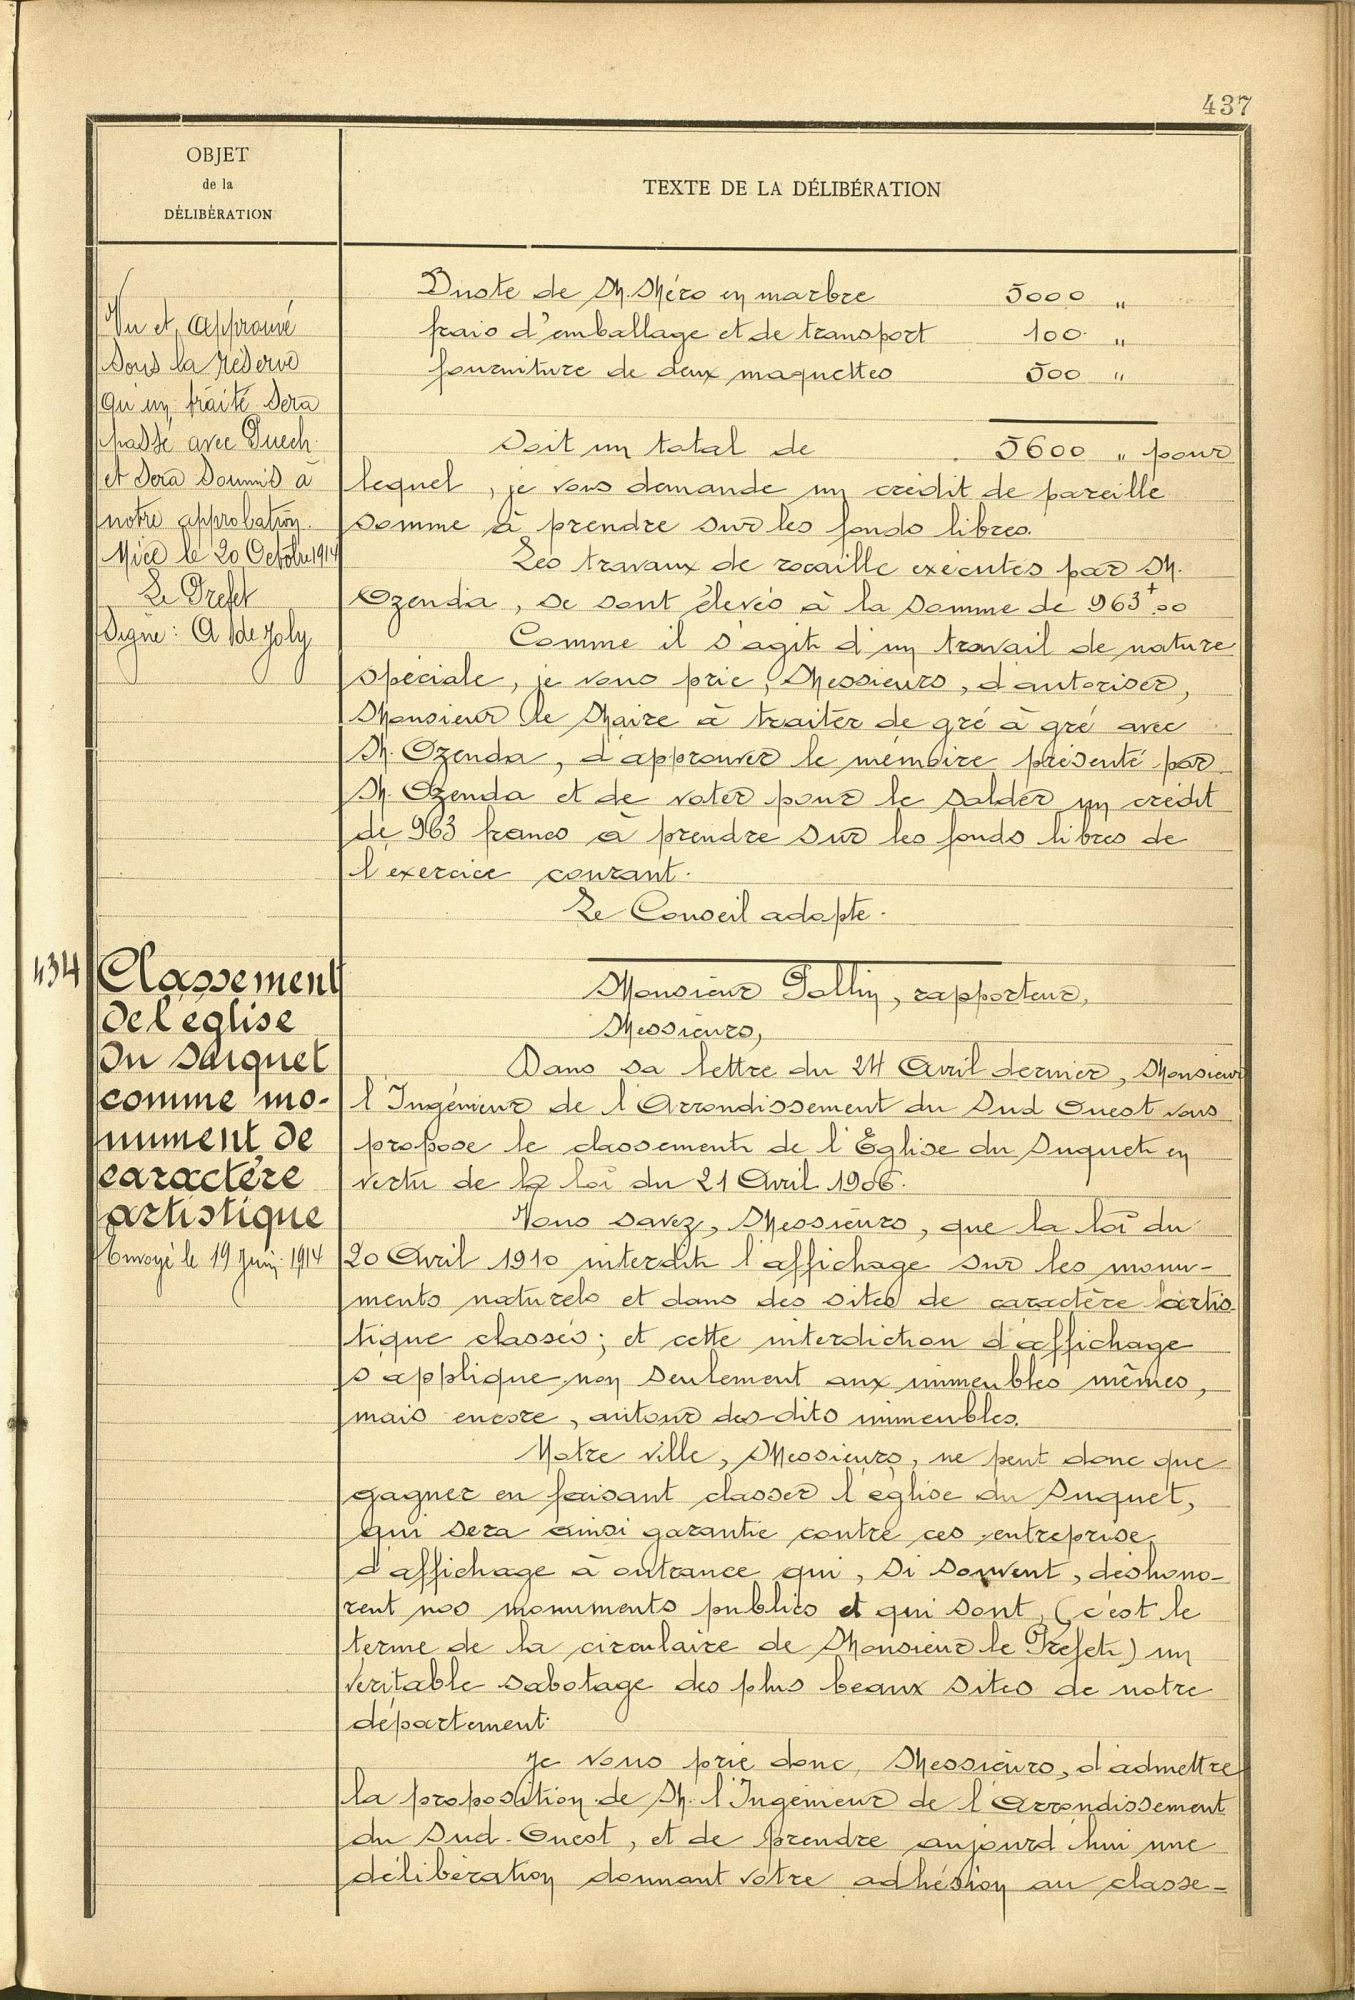 437
OBJET
de la
DÉLIBÉRATION
TEXTE DE LA DÉLIBÉRATION
Vu et Approuvé
sous la réserve
qu'un traité sera
passé avec Puech
et sera soumis à
notre approbation.
Nice le 20 Octobre 1914
Le Préfet
Signé : A de Joly
Buste de M. Méro en marbre 5000 "
frais d'emballage et de transport 100 "
fourniture de deux maquettes 500 "
Soit un total de 5600 " pour
lequel, je vous demande un crédit de pareille
somme à prendre sur les fonds libres.
Les travaux de rocaille exécutés par M.
Ozenda, se sont élevés à la somme de 963 f.00
Comme il s'agit d'un travail de nature
spéciale, je vous prie, Messieurs, d'autoriser,
Monsieur le Maire à traiter de gré à gré avec
M. Ozenda, d'approuver le mémoire présenté par
M. Ozenda et de voter pour le solder un crédit
de 963 francs à prendre sur les fonds libres de
l'exercice courant.
Le Conseil adopte.
434
Classement
de l'église
du Suquet
comme mo-
nument de
caractère
artistique
Envoyé le 19 Juin 1914
Monsieur Pollin, rapporteur,
Messieurs,
Dans sa lettre du 24 Avril dernier, Monsieur
l'Ingénieur de l'Arrondissement du Sud Ouest vous
propose le classement de l'Eglise du Suquet en
vertu de la loi du 21 Avril 1906.
Vous savez, Messieurs, que la loi du
20 Avril 1910 interdit l'affichage sur les monu-
ments naturels et dans des sites de caractère artis
tique classés; et cette interdiction d'affichage
s'applique non seulement aux immeubles mêmes,
mais encore, autour des-dits immeubles.
Notre ville, Messieurs, ne peut donc que
gagner en faisant classer l'église du Suquet,
qui sera ainsi garantie contre ces entreprise
d'affichage à outrance qui, si souvent, désho-
rent nos monuments publics et qui sont, (c'est le
terme de la circulaire de Monsieur le Préfet) un
véritable sabotage des plus beaux sites de notre
département.
Je vous prie donc, Messieurs, d'admettre
la proposition de M. l'Ingénieur de l'Arrondissement
du Sud-Ouest, et de prendre aujourd'hui une
délibération donnant votre adhésion au classe-